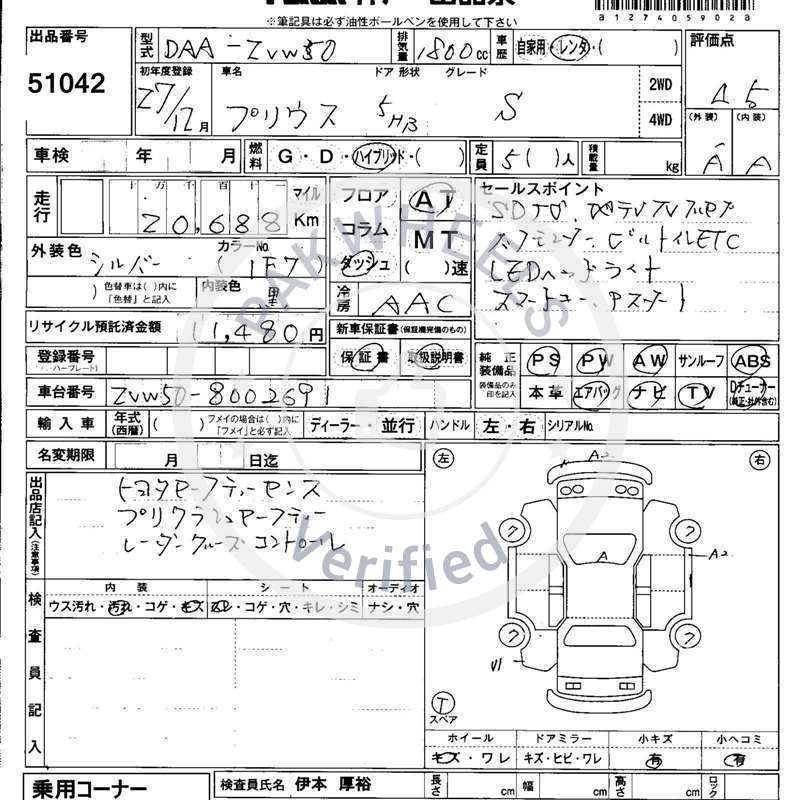 ※筆記具は必ず油性ボールペンを使用して下さい
a1274059028
出品番号 型式 DAA-ZVW50 排気量 1800cc 車歴 自家用・レンタ・( ) 評価点
51042
初年度登録 車名 ドア 形状 グレード
27/12月 プリウス 5 HB S 2WD 4WD
(外装) (内装)
A A
車検 年 月 燃料 G・D・ハイブリッド・( ) 定員 5( )人 積載量 kg
走行 十万千百十一 マイル
20,688 Km
フロア AT
コラム MT
ダッシュ ( )速
セールスポイント
SDナビ、
ビルトインETC
LEDヘッドライト
外装色 シルバー カラーNo. (1F7)
( )色 色替車は( )内に「色替」と記入 内装色 黒 冷房 AAC
リサイクル預託済金額 11,480円
新車保証書(保証欄完備のもの)
保証書 取扱説明書
登録番号
純正装備品 装備品のみ印を記入
PS PW AW サンルーフ ABS
本革 エアバッグ ナビ TV Dチューナー(純正・社外含む)
車台番号 ZVW50-8002691
輸入車 年式(西暦) ( ) フメイの場合は( )内に「フメイ」と必ず記入 ディーラー・並行 ハンドル 左・右 シリアルNo.
名変期限 月 日迄
出品店記入(注意事項)
トヨタセーフティーセンス
プリクラッシュセーフティー
レーダークルーズコントロール
左 右
A2
A
A2
検査員記入
内装 シート オーディオ
ウス汚れ・汚れ・コゲ・キズ ヌレ・コゲ・穴・キレ・シミ ナシ・穴
T
スペア
ホイール ドアミラー 小キズ 小ヘコミ
キズ・ワレ キズ・ヒビ・ワレ 有 有
乗用コーナー 検査員氏名 伊本 厚裕 長さ cm 幅 cm 高さ cm ロック
PAKWHEELS
Verified